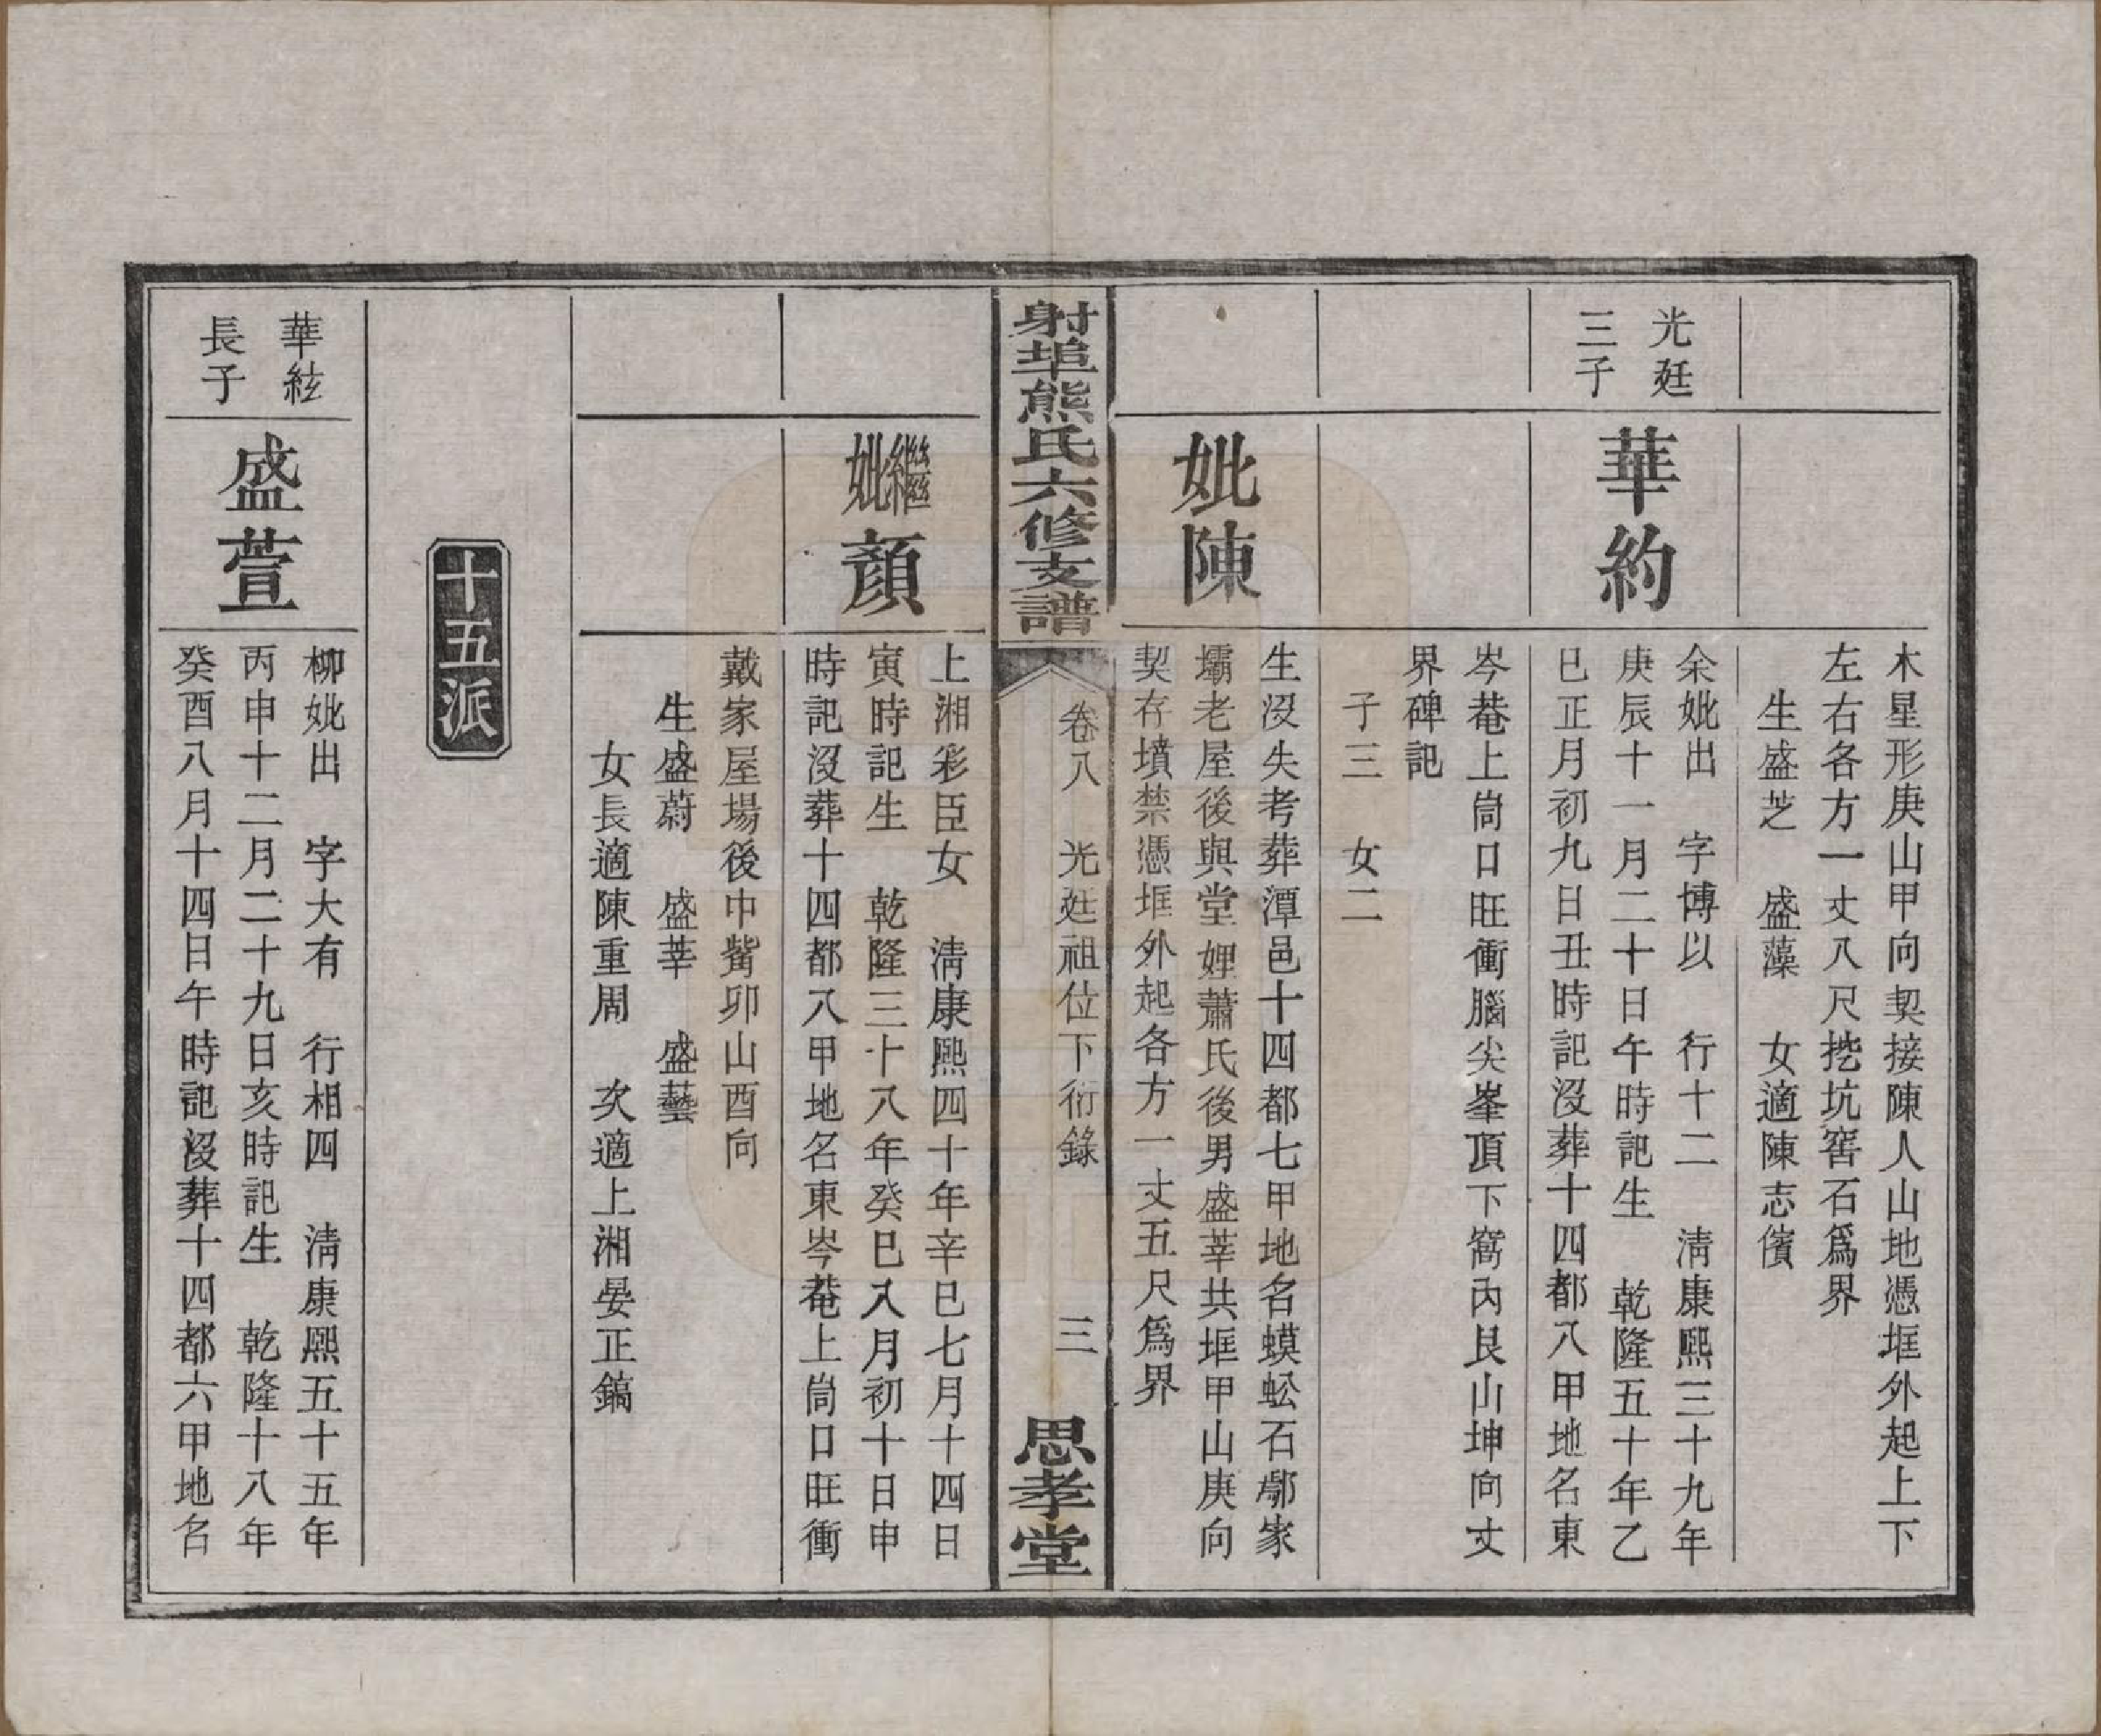 木星形庚山甲向契接陳人山地憑坵外起上下
左右各方一丈八尺挖坑窖石爲界
生盛芝　盛藻　女適陳志儐
光廷
三子
華約
余妣出　字博以　行十二　淸康熙三十九年
庚辰十一月二十日午時記生　乾隆五十年乙
巳正月初九日丑時記沒葬十四都八甲地名東
岑菴上筒口旺衝腦尖峯頂下窩內艮山坤向丈
界碑記
子三　女二
妣陳
生沒失考葬潭邑十四都七甲地名蟆蚣石鄔家
壩老屋後與堂娌蕭氏後男盛莘共坵甲山庚向
契存墳禁憑坵外起各方一丈五尺爲界
射埠熊氏六修支譜
卷八　光廷祖位下衍錄
三
思孝堂
繼妣顏
上湘彩臣女　淸康熙四十年辛巳七月十四日
寅時記生　乾隆三十八年癸巳八月初十日申
時記沒葬十四都八甲地名東岑菴上筒口旺衝
戴家屋場後中觜卯山酉向
生盛蔚　盛莘　盛藝
女長適陳重周　次適上湘晏正鎬
十五派
華絃
長子
盛萱
柳妣出　字大有　行相四　淸康熙五十五年
丙申十二月二十九日亥時記生　乾隆十八年
癸酉八月十四日午時記沒葬十四都六甲地名